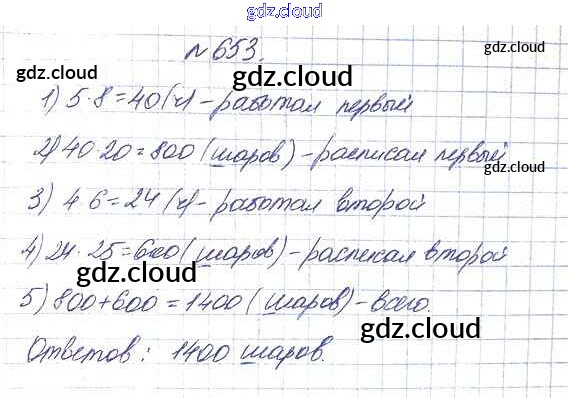 gdz.cloud
№ 653.
gdz.cloud gdz.cloud gdz.cloud
1) 5·8=40(ч)-работал первый
2) 40·20=800 (шаров)-расписал первый
gdz.cloud gdz.cloud
3) 4·6=24 (ч)-работал второй
gdz.cloud
4) 24·25=600(шаров)-расписал второй
gdz.cloud
5) 800+600=1400(шаров)-всего.
gdz.cloud
Ответов: 1400 шаров.